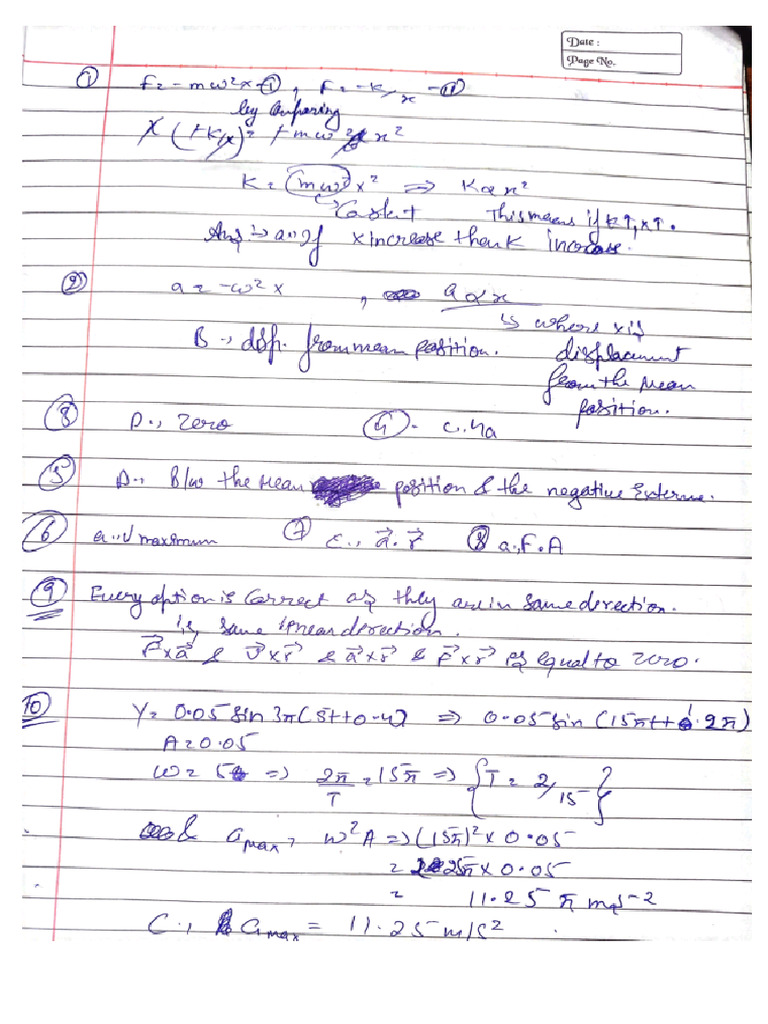 Date :
Page No.
① F = -mω²x -①, F = -k/x -②
by comparing
x (+k/x) = +mω² x²
K = (mω²) x² ⇒ K α x²
Constant This means if k↑, x↑.
Ans is a. if x increase then K increase.
② a = -ω²x , a α x
is where x is
B., disp. from mean position. displacement
from the mean
position.
③ D., Zero ④. c. 4a
⑤ D., B/w the mean position & the negative Extreme.
⑥ a., V maximum ⑦ c., a⃗.r⃗ ⑧ a., F. A
⑨ Every option is correct as they are in same direction.
is, same linear direction.
F⃗×a⃗ & v⃗×r⃗ & a⃗×r⃗ & F⃗×r⃗ is equal to zero.
⑩ Y = 0.05 sin 3π(5t+0.4) ⇒ 0.05 sin (15πt + 1.2π)
A = 0.05
ω = 5 ⇒ 2π/T = 15π ⇒ {T = 2/15}
& a max, ω²A ⇒ (15π)² × 0.05
= 225π × 0.05
= 11.25 π ms-2
C., a max = 11.25 m/s²